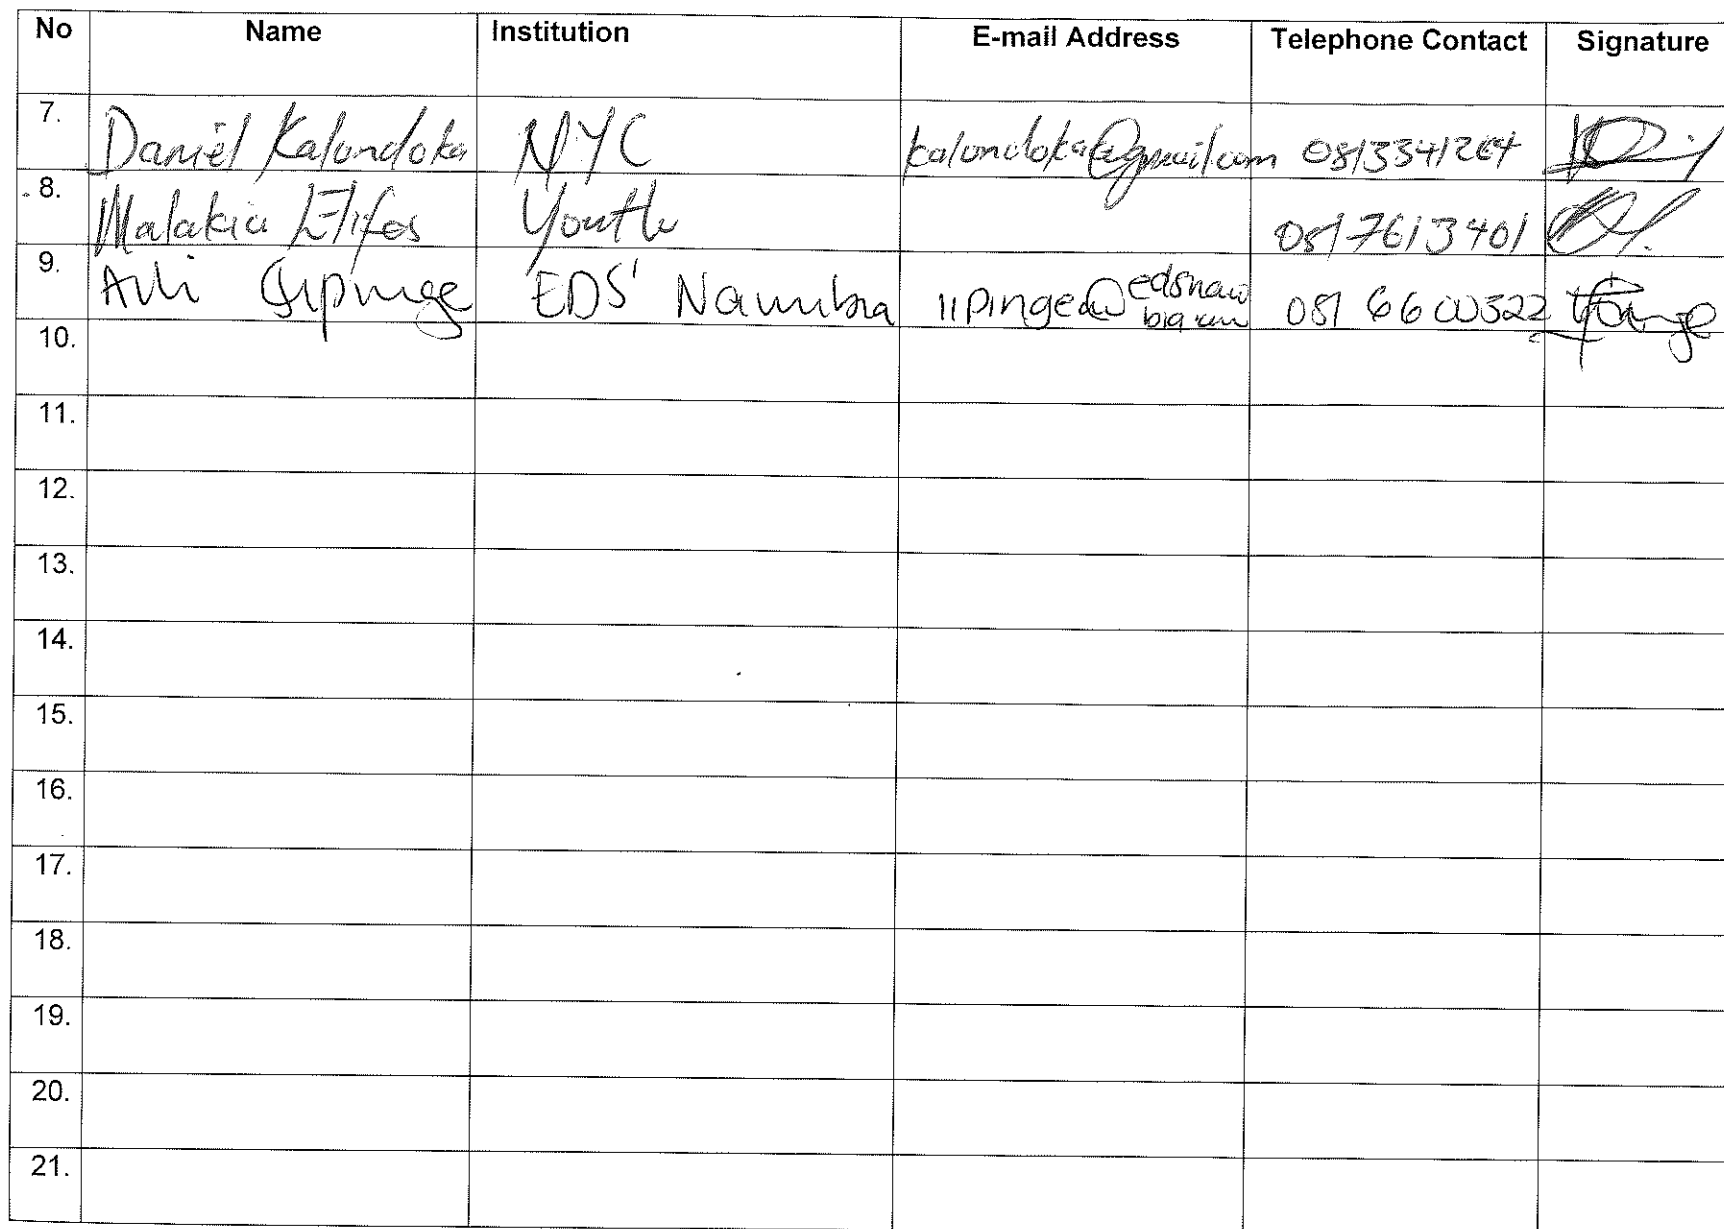 No Name Institution E-mail Address Telephone Contact Signature
7. Daniël Kalondoka NYC kalondoka@gmail.com
8. Malakia Elifas Youth 0817613401
9. EDS Namibia iipinge@edsnamibia.com 081 6600322
10.
11.
12.
13.
14.
15.
16.
17.
18.
19.
20.
21.